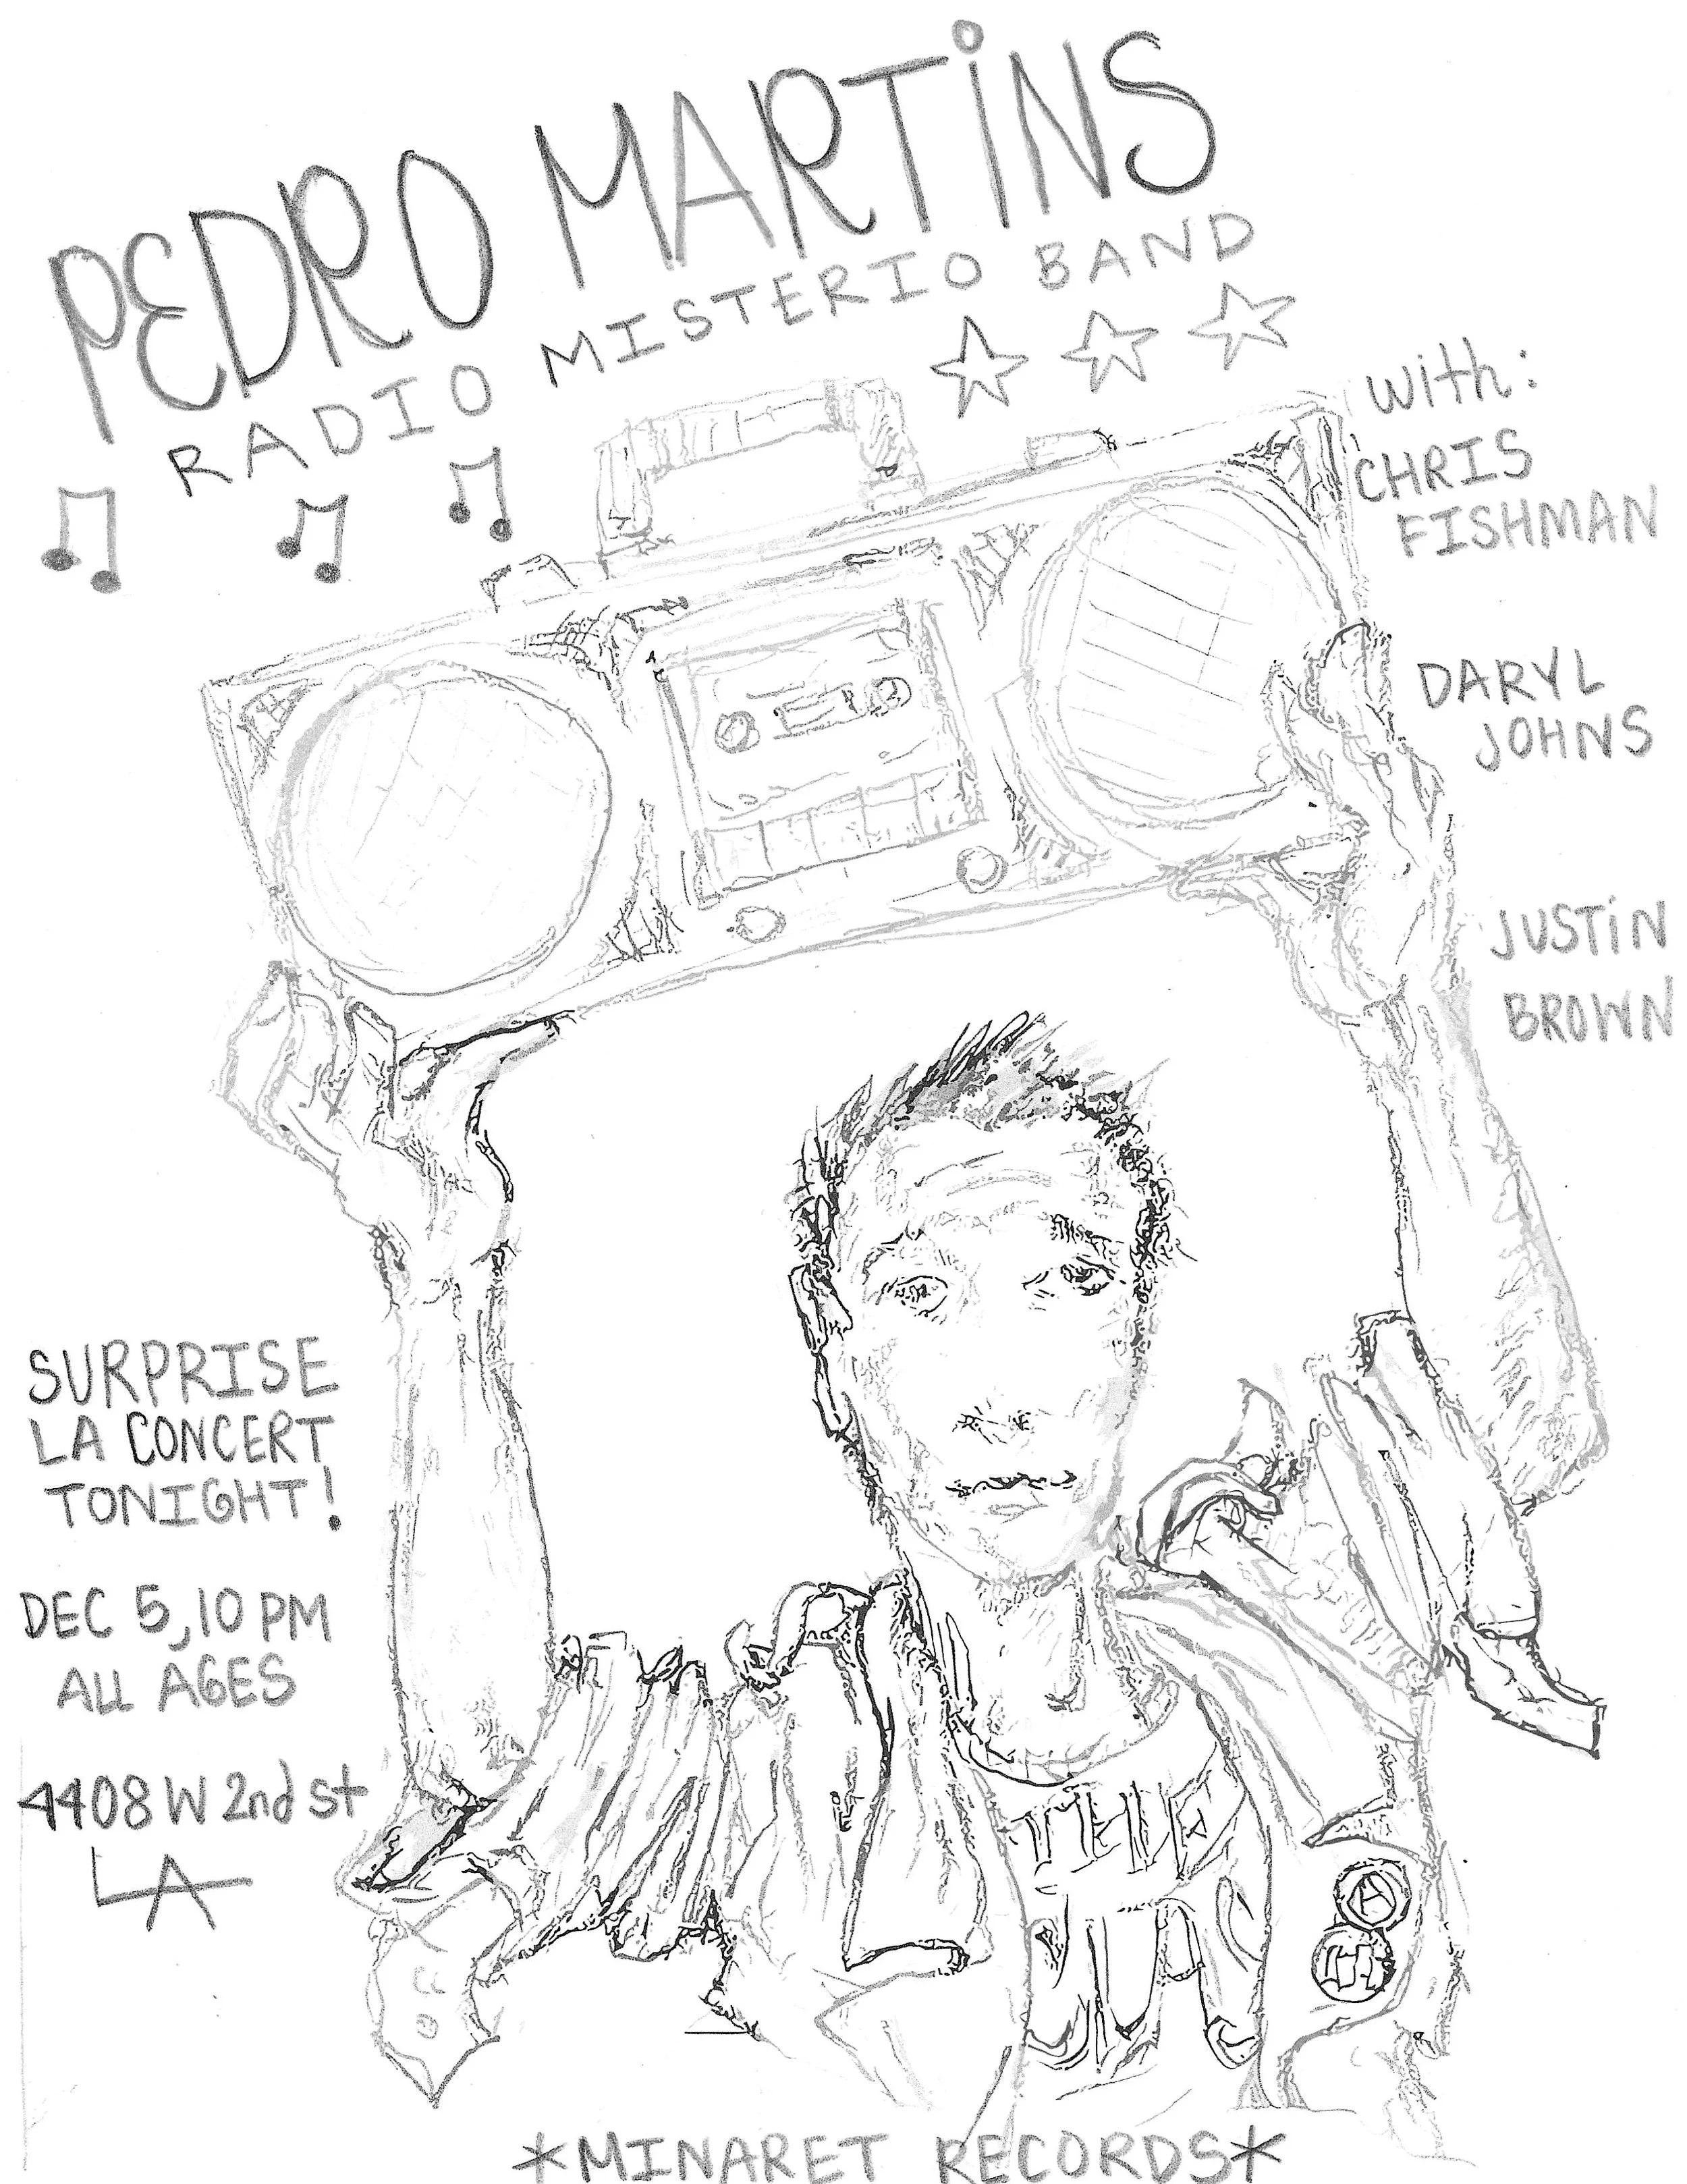 PEDRO MARTINS
RADIO MISTERIO BAND
with:
CHRIS
FISHMAN
DARYL
JOHNS
JUSTIN
BROWN
SURPRISE
LA CONCERT
TONIGHT!
DEC 5, 10 PM
ALL AGES
4408 W 2nd st
LA
THE
A
*MINARET RECORDS*